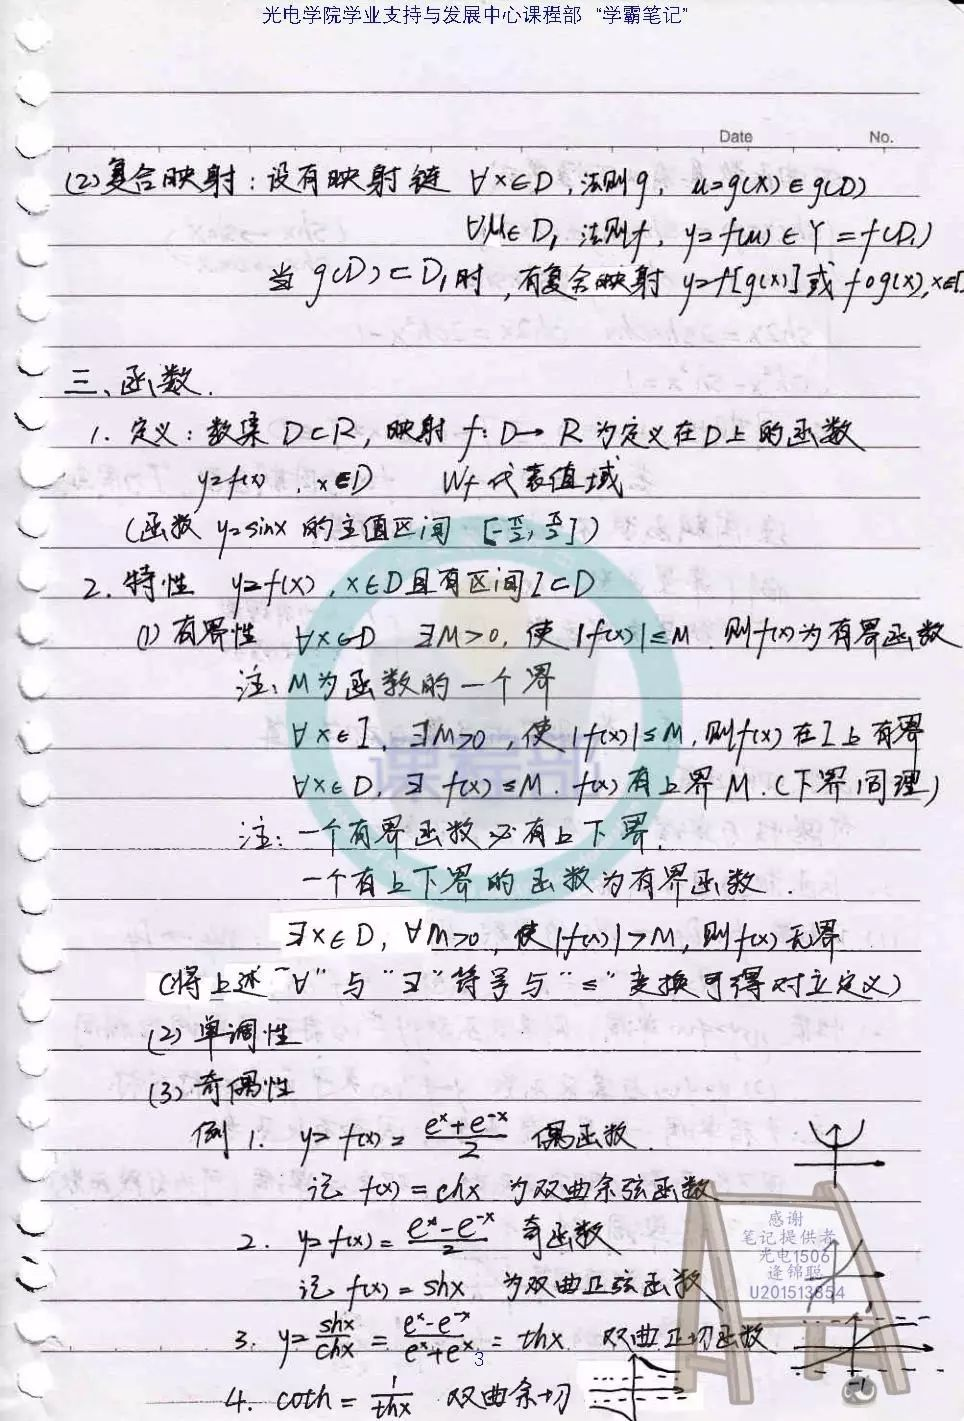 光电学院学业支持与发展中心课程部 “学霸笔记”
Date No.
(2)复合映射：设有映射链 ∀x∈D，法则g，u=g(x)∈g(D)
∀u∈D₁ 法则f，y=f(u)∈Y=f(D₁)
当g(D)⊂D₁时，有复合映射 y=f[g(x)]或f∘g(x),x∈D
三、函数.
1. 定义：数集D⊂R，映射f：D→R为定义在D上的函数
y=f(x)，x∈D Wf代表值域
(函数y=sinx的主值区间 [-π/2, π/2])
2. 特性 y=f(x)，x∈D且有区间I⊂D
(1)有界性 ∀x∈D ∃M>0，使|f(x)|≤M. 则f(x)为有界函数
注：M为函数的一个界
∀x∈I，∃M>0，使|f(x)|≤M，则f(x)在I上有界
∀x∈D，∃ f(x)≤M. f(x)有上界M.(下界同理)
注：一个有界函数必有上下界.
一个有上下界的函数为有界函数.
∃x∈D，∀M>0，使|f(x)|>M，则f(x)无界
(将上述“∀”与“∃”符号与“≤”变换可得对立定义)
(2)单调性
(3)奇偶性
例1. y=f(x)=(eˣ+e⁻ˣ)/2 偶函数.
记 f(x)=chx 为双曲余弦函数
2. y=f(x)=(eˣ-e⁻ˣ)/2 奇函数
记 f(x)=shx 为双曲正弦函数
3. y=shx/chx=(eˣ-e⁻ˣ)/(eˣ+e⁻ˣ)=thx 双曲正切函数
4. coth=1/thx 双曲余切
-1
感谢
笔记提供者
光电1506
逄锦聪
U201513654
课程部
3